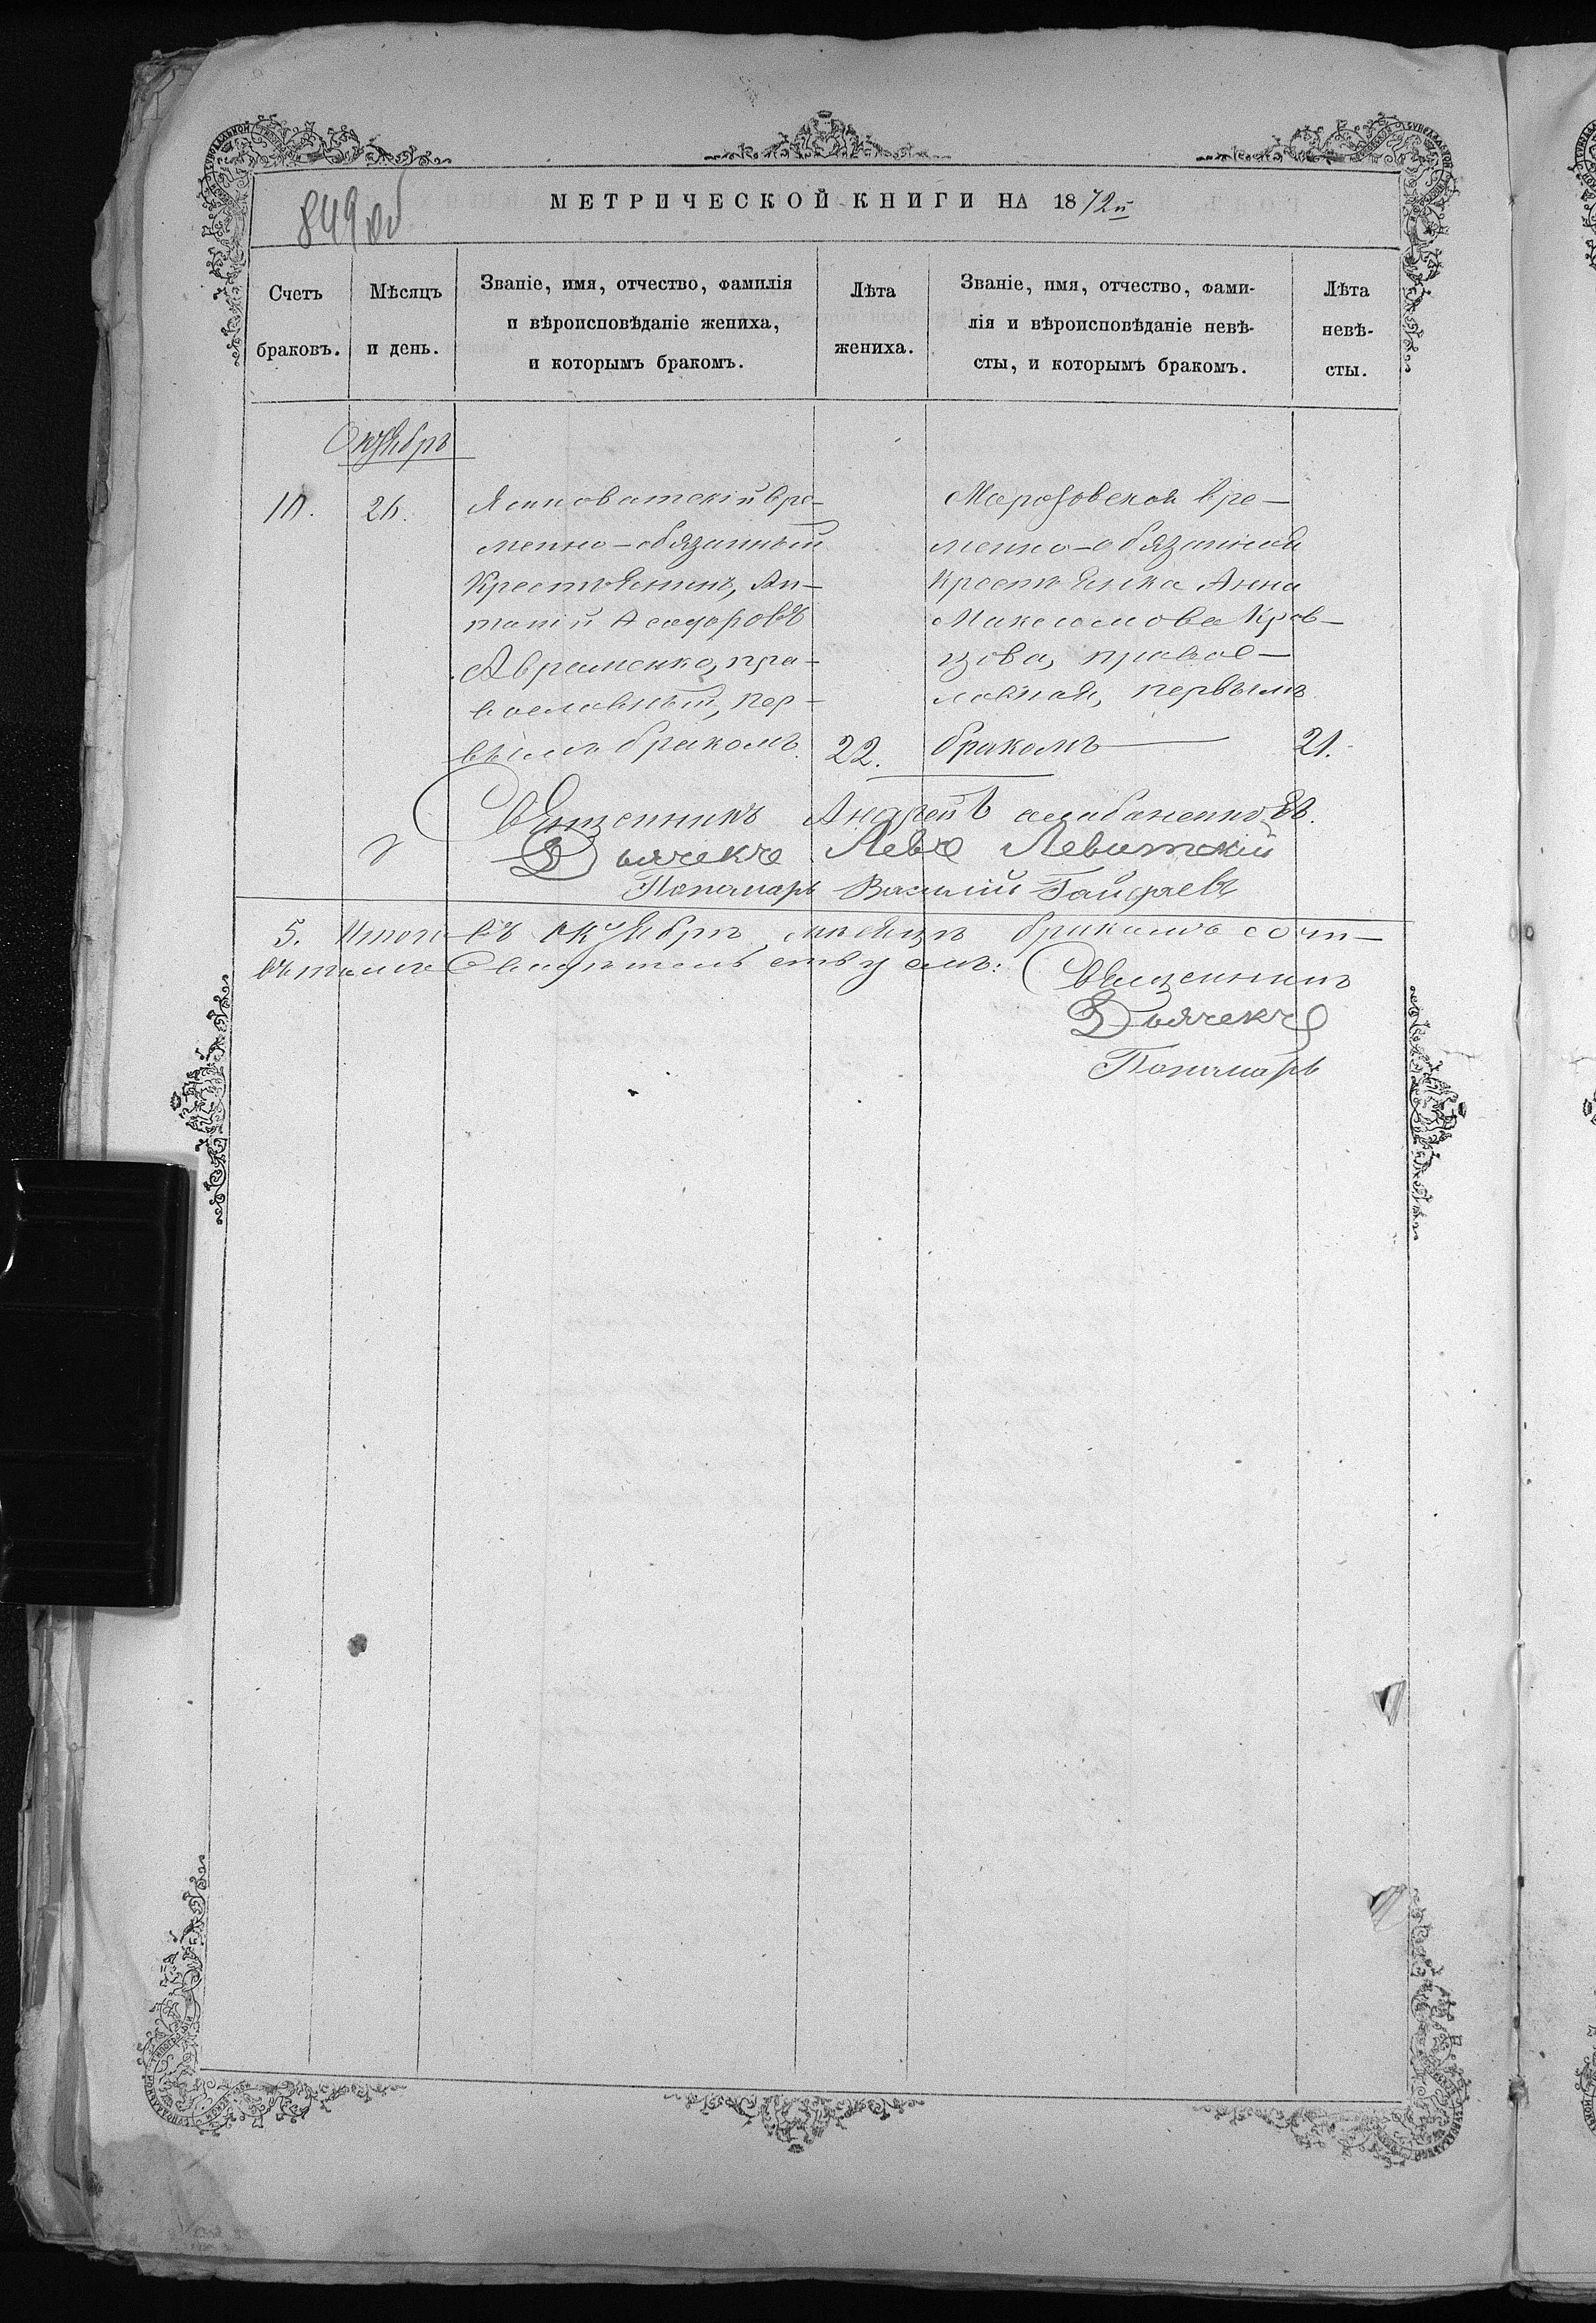 849 об
МЕТРИЧЕСКОЙ КНИГИ НА 1872й
Счетъ браковъ.
Мѣсяцъ и день.
Званіе, имя, отчество, фамилія
и вѣроисповѣданіе жениха,
и которымъ бракомъ.
Лѣта жениха.
Званіе, имя, отчество, фами-
лія и вѣроисповѣданіе невѣ-
сты, и которымъ бракомъ.
Лѣта невѣ-
сты.
Октябрь
10.
26.
Ясиноватскій вре-
менно-обязанный
Крестьянинъ, Ан-
тоній Асафовъ
Авраменко, пра-
вославный, пер-
вымъ бракомъ
22.
вре-
менно-обязанная
Крестьянка Анна
Максимова Крав-
цова, правос-
лавная, первымъ
бракомъ
21.
Священникъ Андрей
Дьячекъ Левъ Левитскій
Пономарь Василій
5. Итого въ октябрѣ мѣсяцѣ бракомъ соч-
Свидѣтельствуемъ:
Священникъ
Дьячекъ
Пономарь